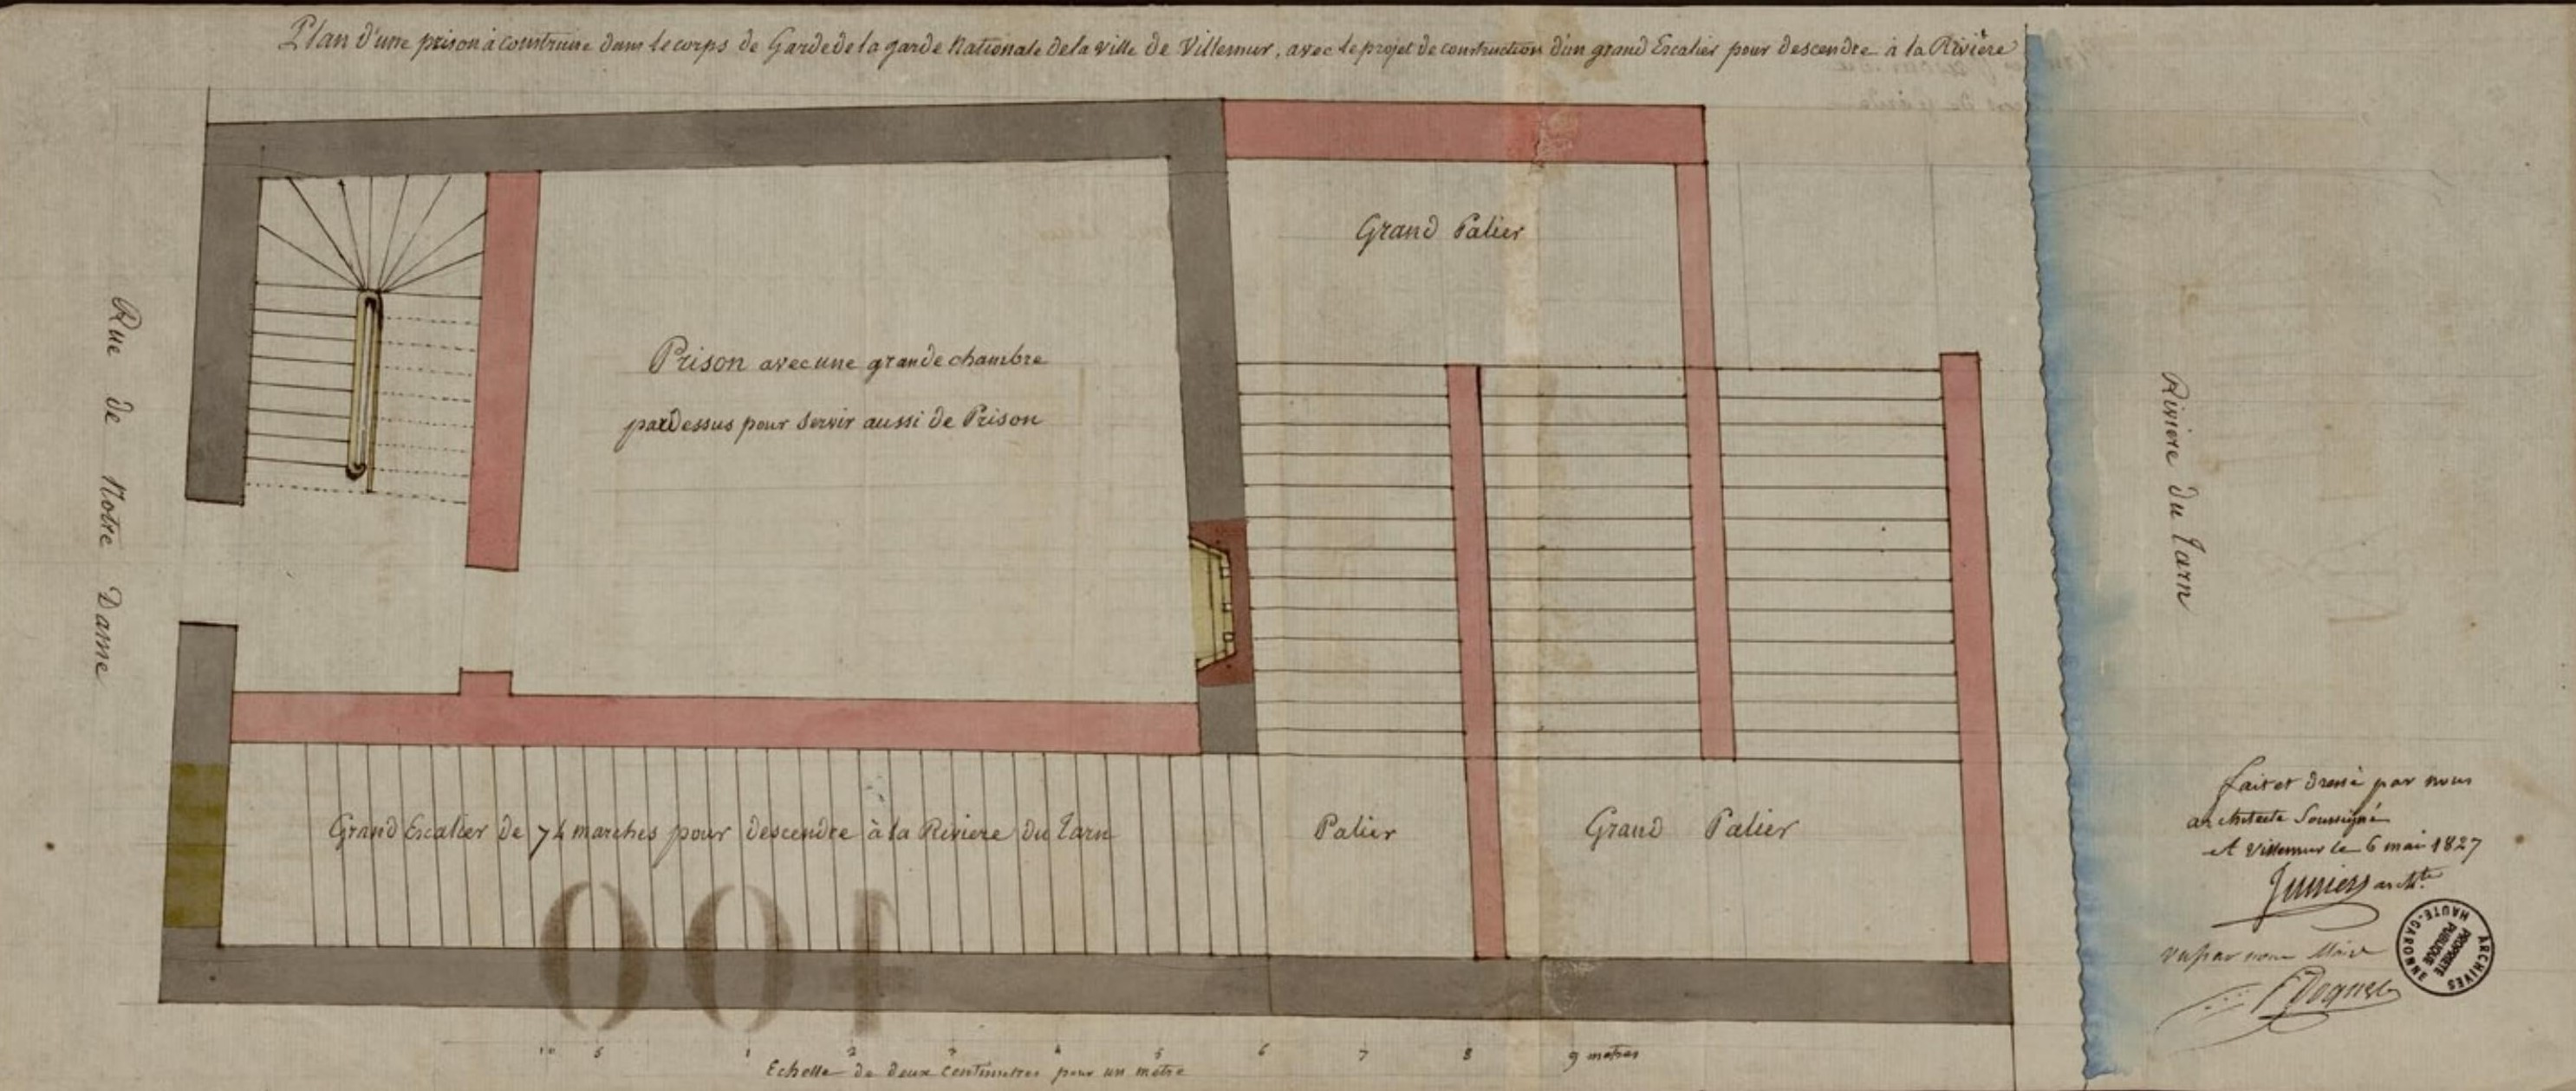 Plan d'une prison à construire dans le corps de Garde de la garde Nationale de la ville de Villemur, avec le projet de construction d'un grand Escalier pour descendre à la Rivière
Rue de Notre Dame
Prison avec une grande chambre
pardessus pour servir aussi de Prison
Grand Palier
Riviere du Tarn
Grand Escalier de 74 marches pour descendre à la Riviere du Tarn
Palier
Grand Palier
fait et dressé par nous
architecte Soussigné
A Villemur le 6 mai 1827
archte
vu par nous Maire
ARCHIVES HAUTE-GARONNE
PROPRIÉTÉ PUBLIQUE
001
10 5 1 2 3 4 5 6 7 8 9 metres
Echelle de deux centimetres pour un metre